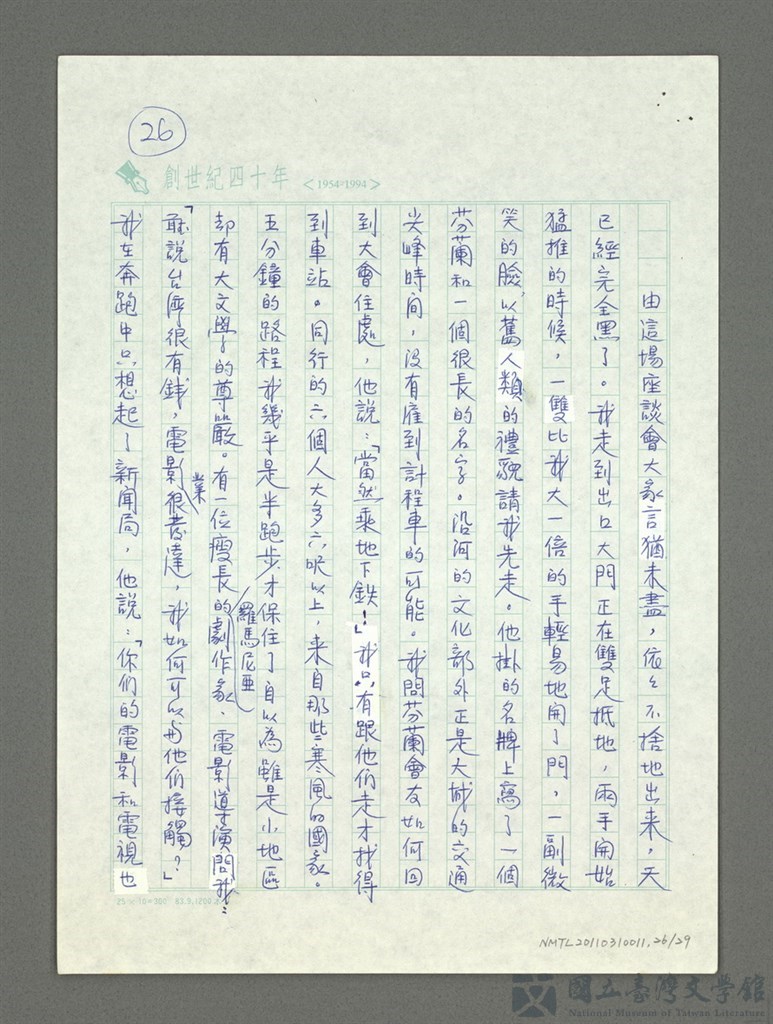 26
創世紀四十年 <1954-1994>
由這場座談會大家言猶未盡,依依不捨地出來,天
已經完全黑了。我走到出口大門正在雙足抵地,兩手開始
猛推的時候,一雙比我大一倍的手輕易地開了門,一副微
笑的臉,以舊人類的禮貌請我先走。他掛的名牌上寫了一個
芬蘭和一個很長的名字。沿河的文化部外正是大城的交通
尖峰時間,沒有雇到計程車的可能。我問芬蘭會友如何回
到大會住處,他說:「當然乘地下鉄!」我只有跟他們走才找得
到車站。同行的六個人大多六呎以上,來自那些寒風的國家。
五分鐘的路程我幾乎是半跑步才保住了自以為雖是小地區
却有大文學的尊嚴。有一位瘦長的羅馬尼亞劇作家、電影導演問我:
「聽說台灣很有錢,電影業很發達,我如何可以與他們接觸?」
我在奔跑中只想起了新聞局,他說:「你们的電影和電視也
25×12=300 83.9.1200本
NMTL20110310011, 26/29
國立臺灣文學館
National Museum of Taiwan Literature